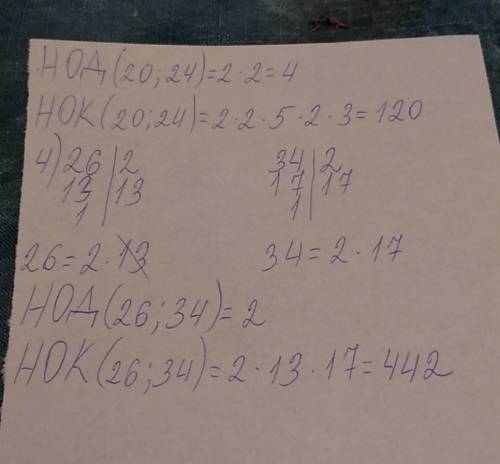 НОД(20;24)=2·2=4
НОК(20;24)=2·2·5·2·3=120
4) 26|2 34|2
13|13 17|17
1| 1|
26=2·13 34=2·17
НОД(26;34)=2
НОК(26;34)=2·13·17=442